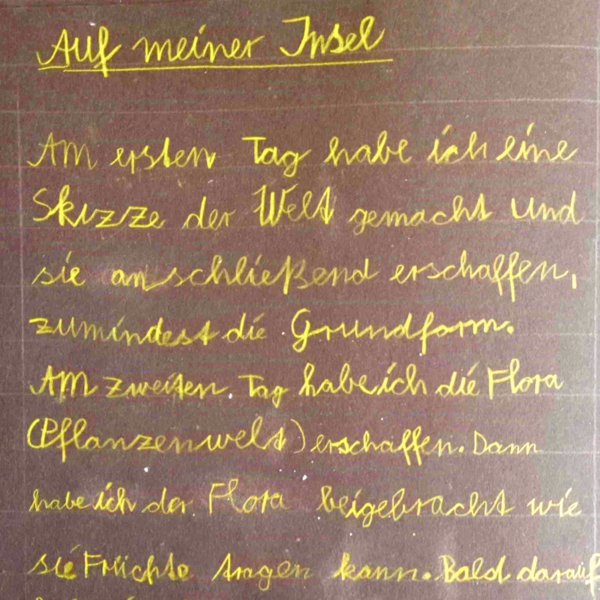 Auf meiner Insel
Am ersten Tag habe ich eine
Skizze der Welt gemacht und
sie anschließend erschaffen,
zumindest die Grundform.
Am zweiten Tag habe ich die Flora
(Pflanzenwelt) erschaffen. Dann
habe ich der Flora beigebracht wie
sie Früchte tragen kann. Bald darauf